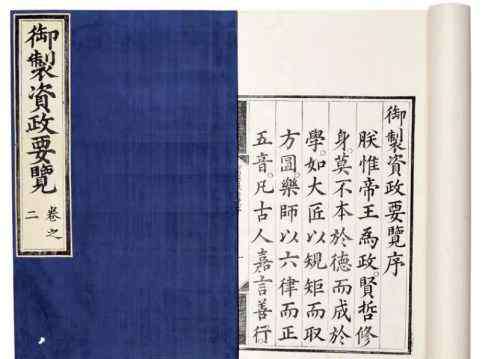 御製資政要覽
卷之
二
御製資政要覽序
朕惟帝王為政。賢哲修
身。莫不本於德而成於
學。如大匠以規矩而取
方圓。樂師以六律而正
五音。凡古人嘉言善行